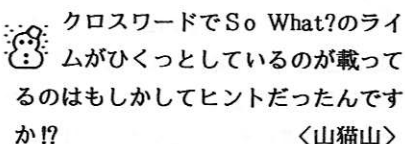 クロスワードでSo What?のライ
ムがひくっとしているのが載って
るのはもしかしてヒントだったんです
か!? 〈山猫山〉